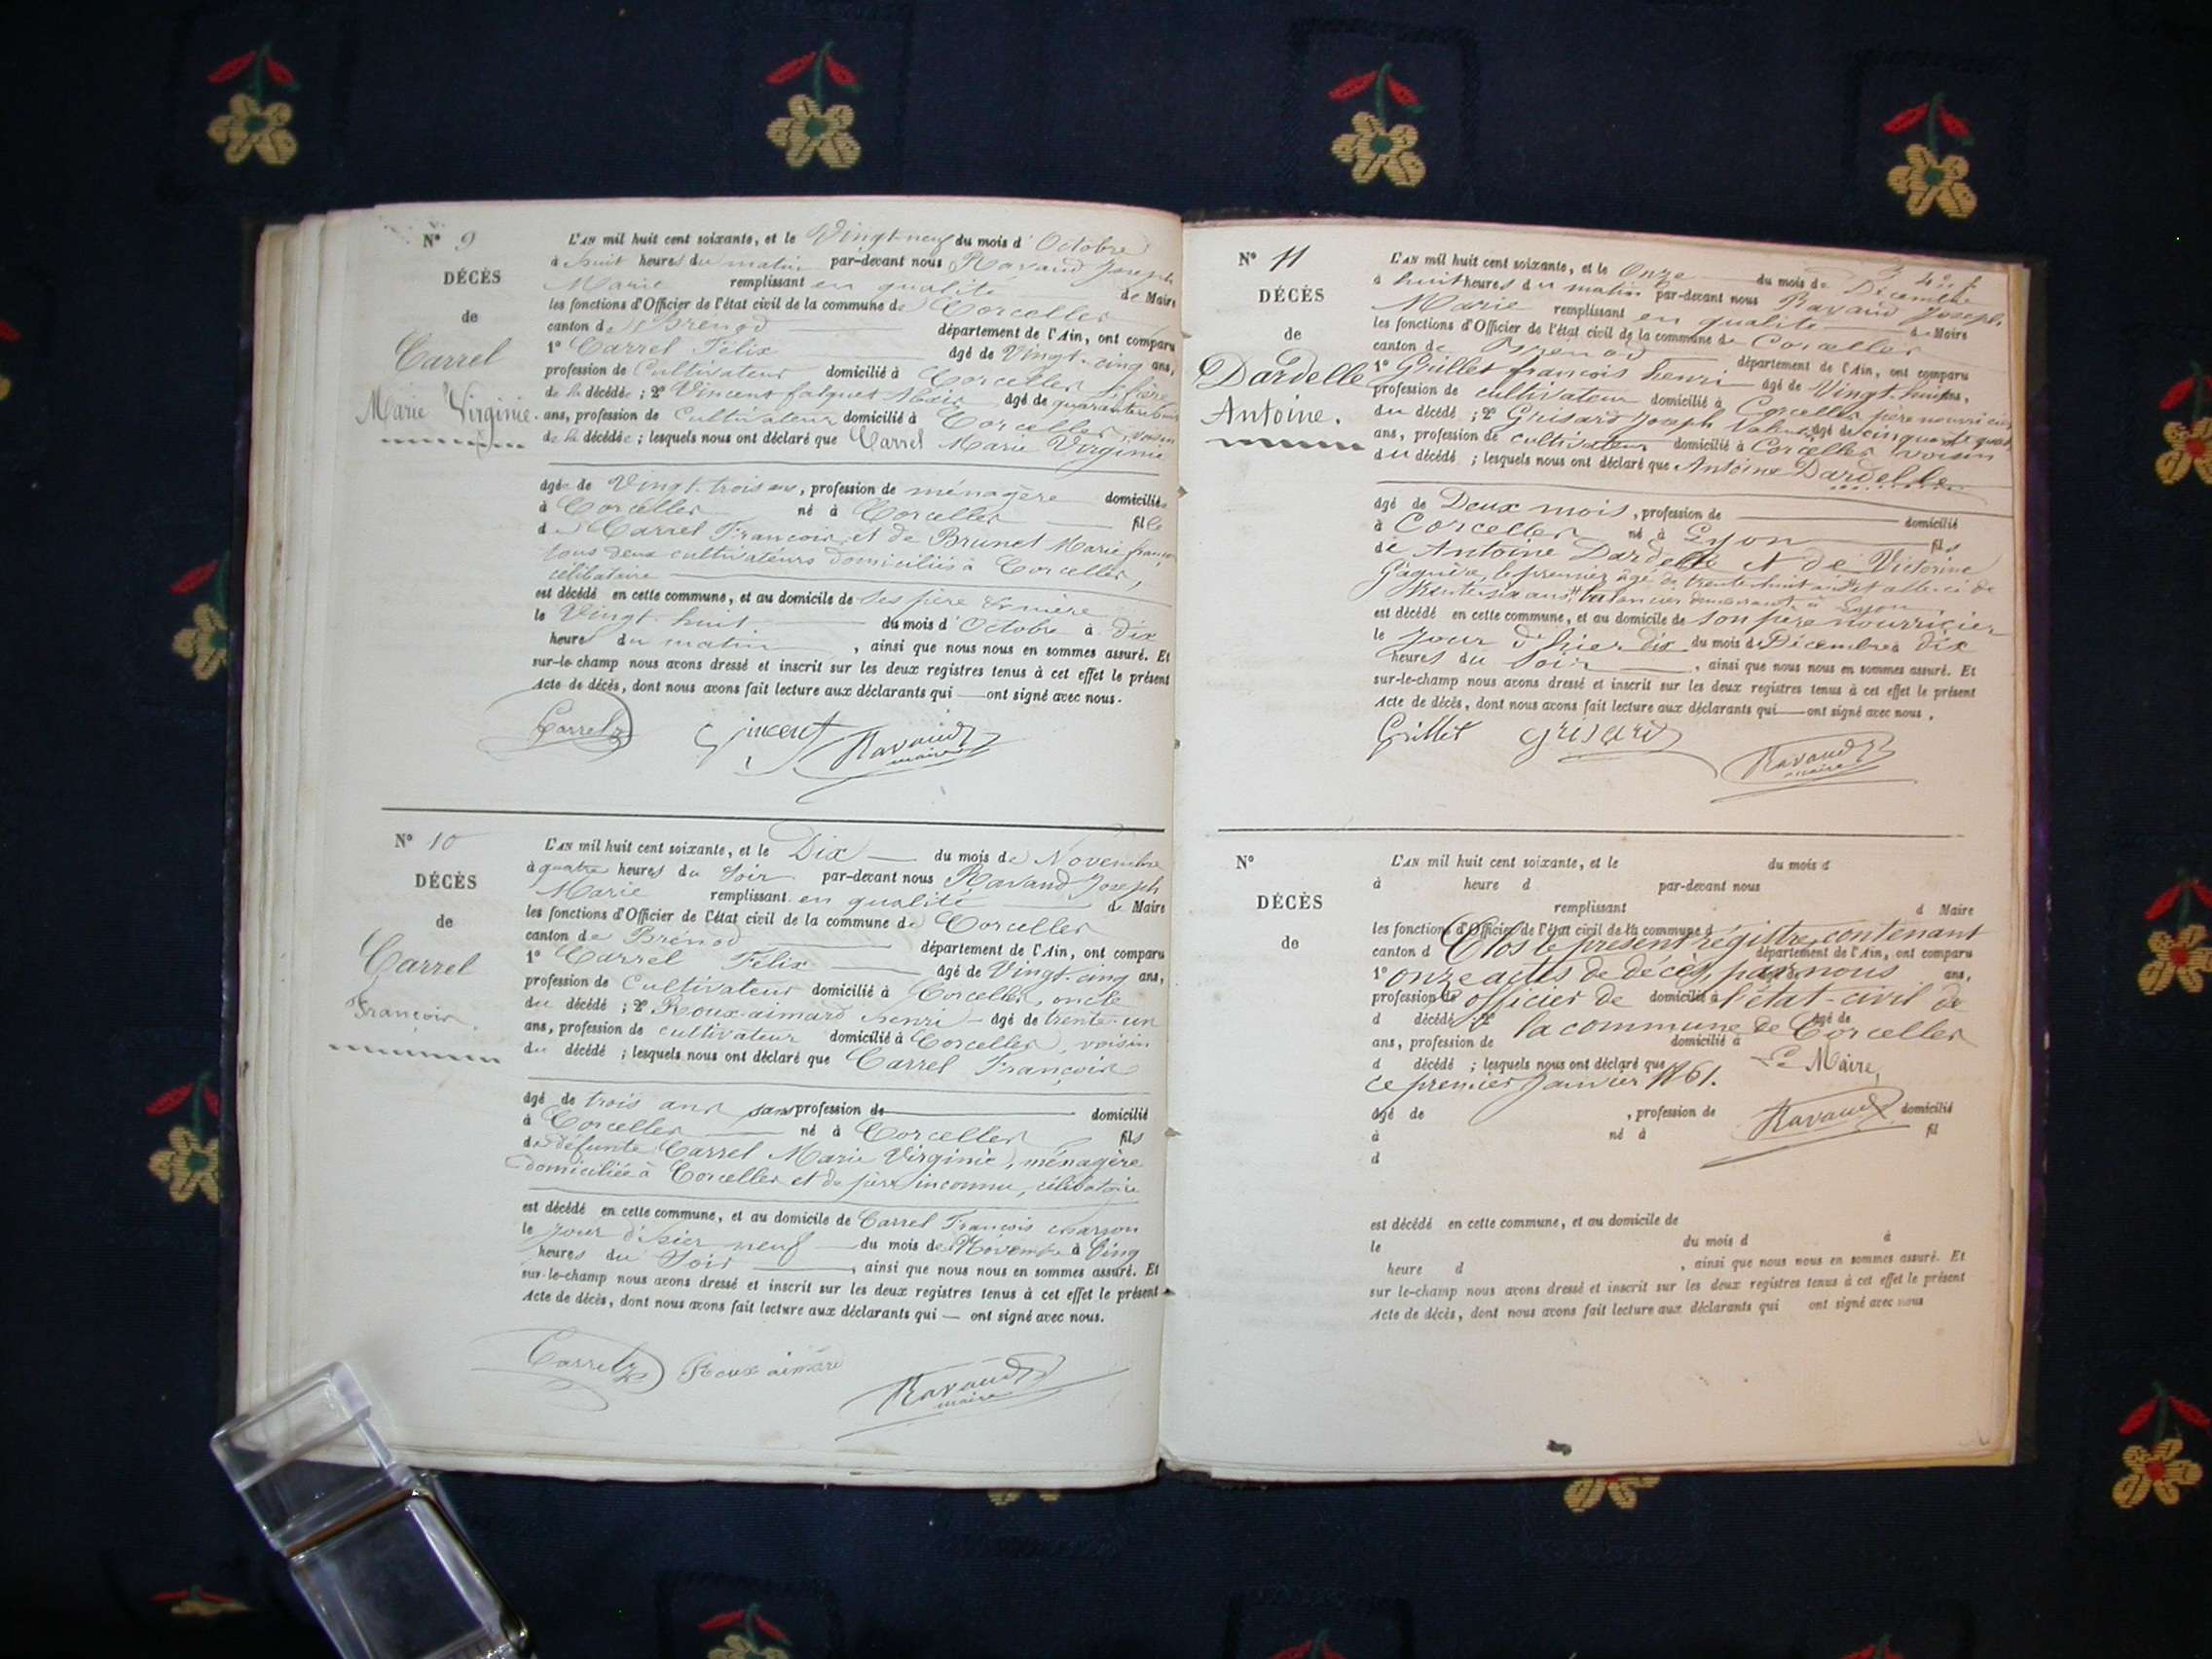 N° 9
DÉCÈS
de
Carrel
Marie Virginie.
L'AN mil huit cent soixante, et le Vingt-neuf du mois d'Octobre
à huit heures du matin par-devant nous Ravaud Joseph
Marie remplissant en qualité de Maire
les fonctions d'Officier de l'état civil de la commune de Corcelles
canton de Brenod département de l'Ain, ont comparu
1° Carrel Félix âgé de Vingt-cinq ans,
profession de Cultivateur domicilié à Corcelles, frère
de la décédée ; 2° Vincent falquet âgé de
ans, profession de Cultivateur domicilié à Corcelles, voisin
de la décédée ; lesquels nous ont déclaré que Carrel Marie Virginie
âgée de Vingt-trois ans, profession de ménagère domiciliée
à Corcelles né à Corcelles fille
de Carrel François et de Brunet Marie
tous deux cultivateurs domiciliés à Corcelles,
célibataire
est décédé en cette commune, et au domicile de ses père & mère
le Vingt-huit du mois d'Octobre à dix
heures du matin, ainsi que nous nous en sommes assuré. Et
sur-le-champ nous avons dressé et inscrit sur les deux registres tenus à cet effet le présent
Acte de décès, dont nous avons fait lecture aux déclarants qui — ont signé avec nous.
Carrel Vincent Ravaud
maire
N° 10
DÉCÈS
de
Carrel
François.
L'AN mil huit cent soixante, et le Dix du mois de Novembre
à quatre heures du soir par-devant nous Ravaud Joseph
Marie remplissant en qualité de Maire
les fonctions d'Officier de l'état civil de la commune de Corcelles
canton de Brénod département de l'Ain, ont comparu
1° Carrel Félix âgé de Vingt-cinq ans,
profession de Cultivateur domicilié à Corcelles, oncle
du décédé ; 2° Roux-aimard henri âgé de trente-un
ans, profession de cultivateur domicilié à Corcelles, voisin
du décédé ; lesquels nous ont déclaré que Carrel François
âgé de trois ans sans profession de domicilié
à Corcelles né à Corcelles fils
de défunte Carrel Marie Virginie, ménagère
domiciliée à Corcelles et de père inconnu, célibataire
est décédé en cette commune, et au domicile de Carrel François charron
le jour d'hier neuf du mois de Novembre à Cinq
heures du soir, ainsi que nous nous en sommes assuré. Et
sur-le-champ nous avons dressé et inscrit sur les deux registres tenus à cet effet le présent
Acte de décès, dont nous avons fait lecture aux déclarants qui — ont signé avec nous.
Carrel Roux aimard Ravaud
maire
N° 11
DÉCÈS
de
Dardelle
Antoine.
L'AN mil huit cent soixante, et le Onze du mois de Décembre
à huit heures du matin par-devant nous Ravaud Joseph
Marie remplissant en qualité de Maire
les fonctions d'Officier de l'état civil de la commune de Corcelles
canton de Brenod département de l'Ain, ont comparu
1° Grillet françois henri âgé de Vingt-huit ans,
profession de cultivateur domicilié à Corcelles père nourricier
du décédé ; 2° Grisard Joseph âgé de cinquante quatre
ans, profession de cultivateur domicilié à Corcelles voisin
du décédé ; lesquels nous ont déclaré que Antoine Dardelle
âgé de Deux mois, profession de domicilié
à Corcelles né à Lyon fils
de Antoine Dardelle et de Victorine
le premier âgé de trente huit ans et
trente six ans, demeurant à Lyon
est décédé en cette commune, et au domicile de son père nourricier
le jour d'hier dix du mois de Décembre à dix
heures du soir, ainsi que nous nous en sommes assuré. Et
sur-le-champ nous avons dressé et inscrit sur les deux registres tenus à cet effet le présent
Acte de décès, dont nous avons fait lecture aux déclarants qui — ont signé avec nous.
Grillet Grisard Ravaud
maire
N°
DÉCÈS
de
L'AN mil huit cent soixante, et le du mois d
à heure d par-devant nous
remplissant d Maire
les fonctions d'Officier de l'état civil de la commune d
Clos le présent régistre contenant
canton d département de l'Ain, ont comparu
1° onze actes de décès, par nous ans,
profession de officier de domicilié à l'état-civil de
d décédé ; 2° la commune de Corcelles âgé de
ans, profession de domicilié à
d décédé ; lesquels nous ont déclaré que Le Maire,
ce premier Janvier 1861.
âgé de , profession de Ravaud domicilié
à né à fil
d
est décédé en cette commune, et au domicile de
le du mois d à
heure d , ainsi que nous nous en sommes assuré. Et
sur le-champ nous avons dressé et inscrit sur les deux registres tenus à cet effet le présent
Acte de décès, dont nous avons fait lecture aux déclarants qui ont signé avec nous